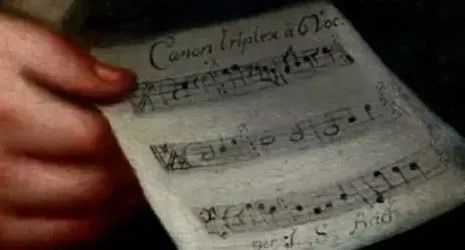 Canon triplex à 6 Voc.
per J. S. Bach